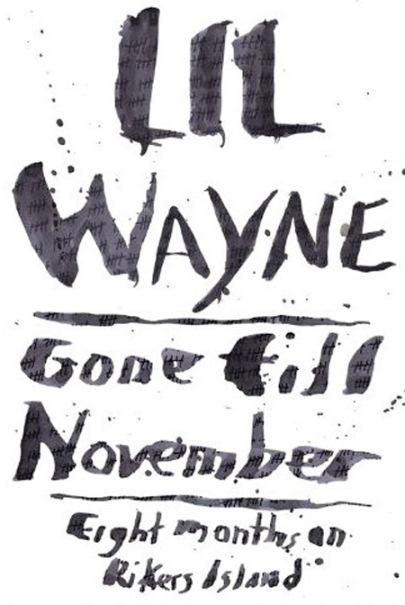 LIL
WAYNE
Gone Till
November
Eight months on
Rikers Island